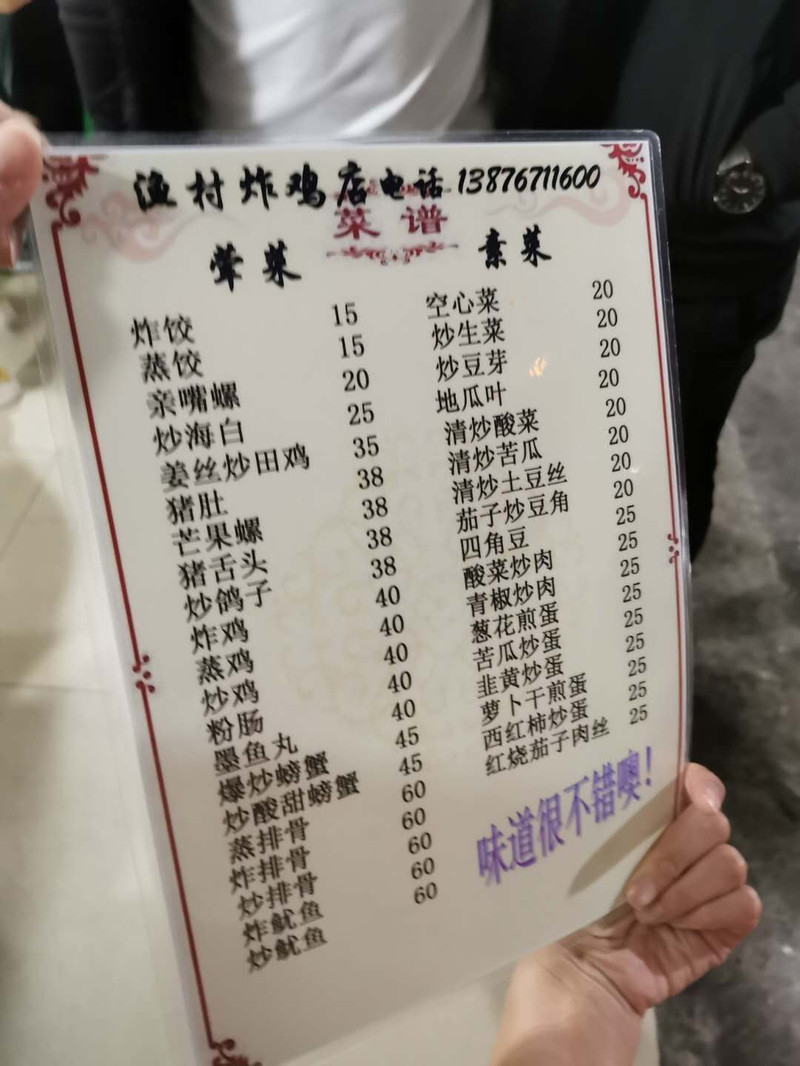 渔村炸鸡店电话 13876711600
菜谱
荤菜
炸饺 15
蒸饺 15
亲嘴螺 20
炒海白 25
姜丝炒田鸡 35
猪肚 38
芒果螺 38
猪舌头 38
炒鸽子 38
炸鸡 40
蒸鸡 40
炒鸡 40
粉肠 40
墨鱼丸 40
爆炒螃蟹 45
炒酸甜螃蟹 45
蒸排骨 60
炸排骨 60
炒排骨 60
炸鱿鱼 60
炒鱿鱼 60
素菜
空心菜 20
炒生菜 20
炒豆芽 20
地瓜叶 20
清炒酸菜 20
清炒苦瓜 20
清炒土豆丝 20
茄子炒豆角 20
四角豆 25
酸菜炒肉 25
青椒炒肉 25
葱花煎蛋 25
苦瓜炒蛋 25
韭黄炒蛋 25
萝卜干煎蛋 25
西红柿炒蛋 25
红烧茄子肉丝 25
味道很不错噢!